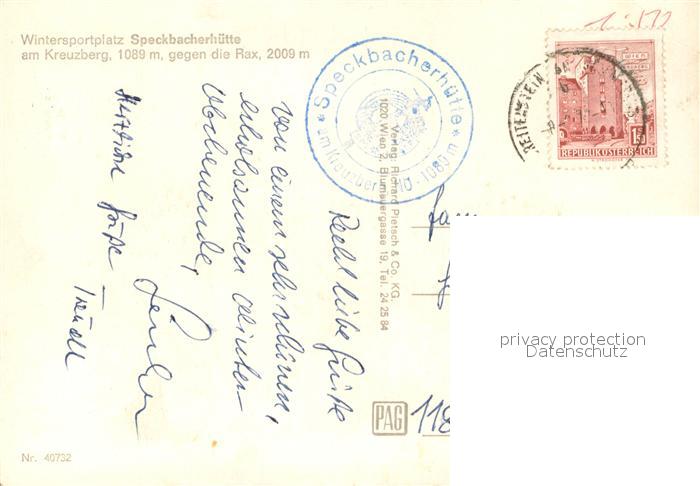 Wintersportplatz Speckbacherhütte
am Kreuzberg, 1089 m, gegen die Rax, 2009 m
* Speckbacherhütte *
am Kreuzberg
1089 m
REPUBLIK ÖSTERREICH
Verlag: Richard Pietsch & Co. KG.
1020 Wien 2, Blumauergasse 19, Tel. 24 25 84
Recht liebe Grüße
von einem sehr schönen,
erholsamen Winter-
wochenende,
Herzliche Grüße
Traudl
Fam
118
PAG
Nr. 40732
privacy protection
Datenschutz